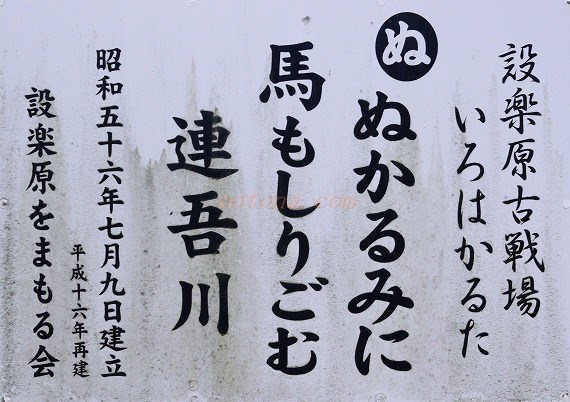 設楽原古戦場
いろはかるた
ぬ
ぬかるみに
馬もしりごむ
連吾川
昭和五十六年七月九日建立
平成十六年再建
設楽原をまもる会